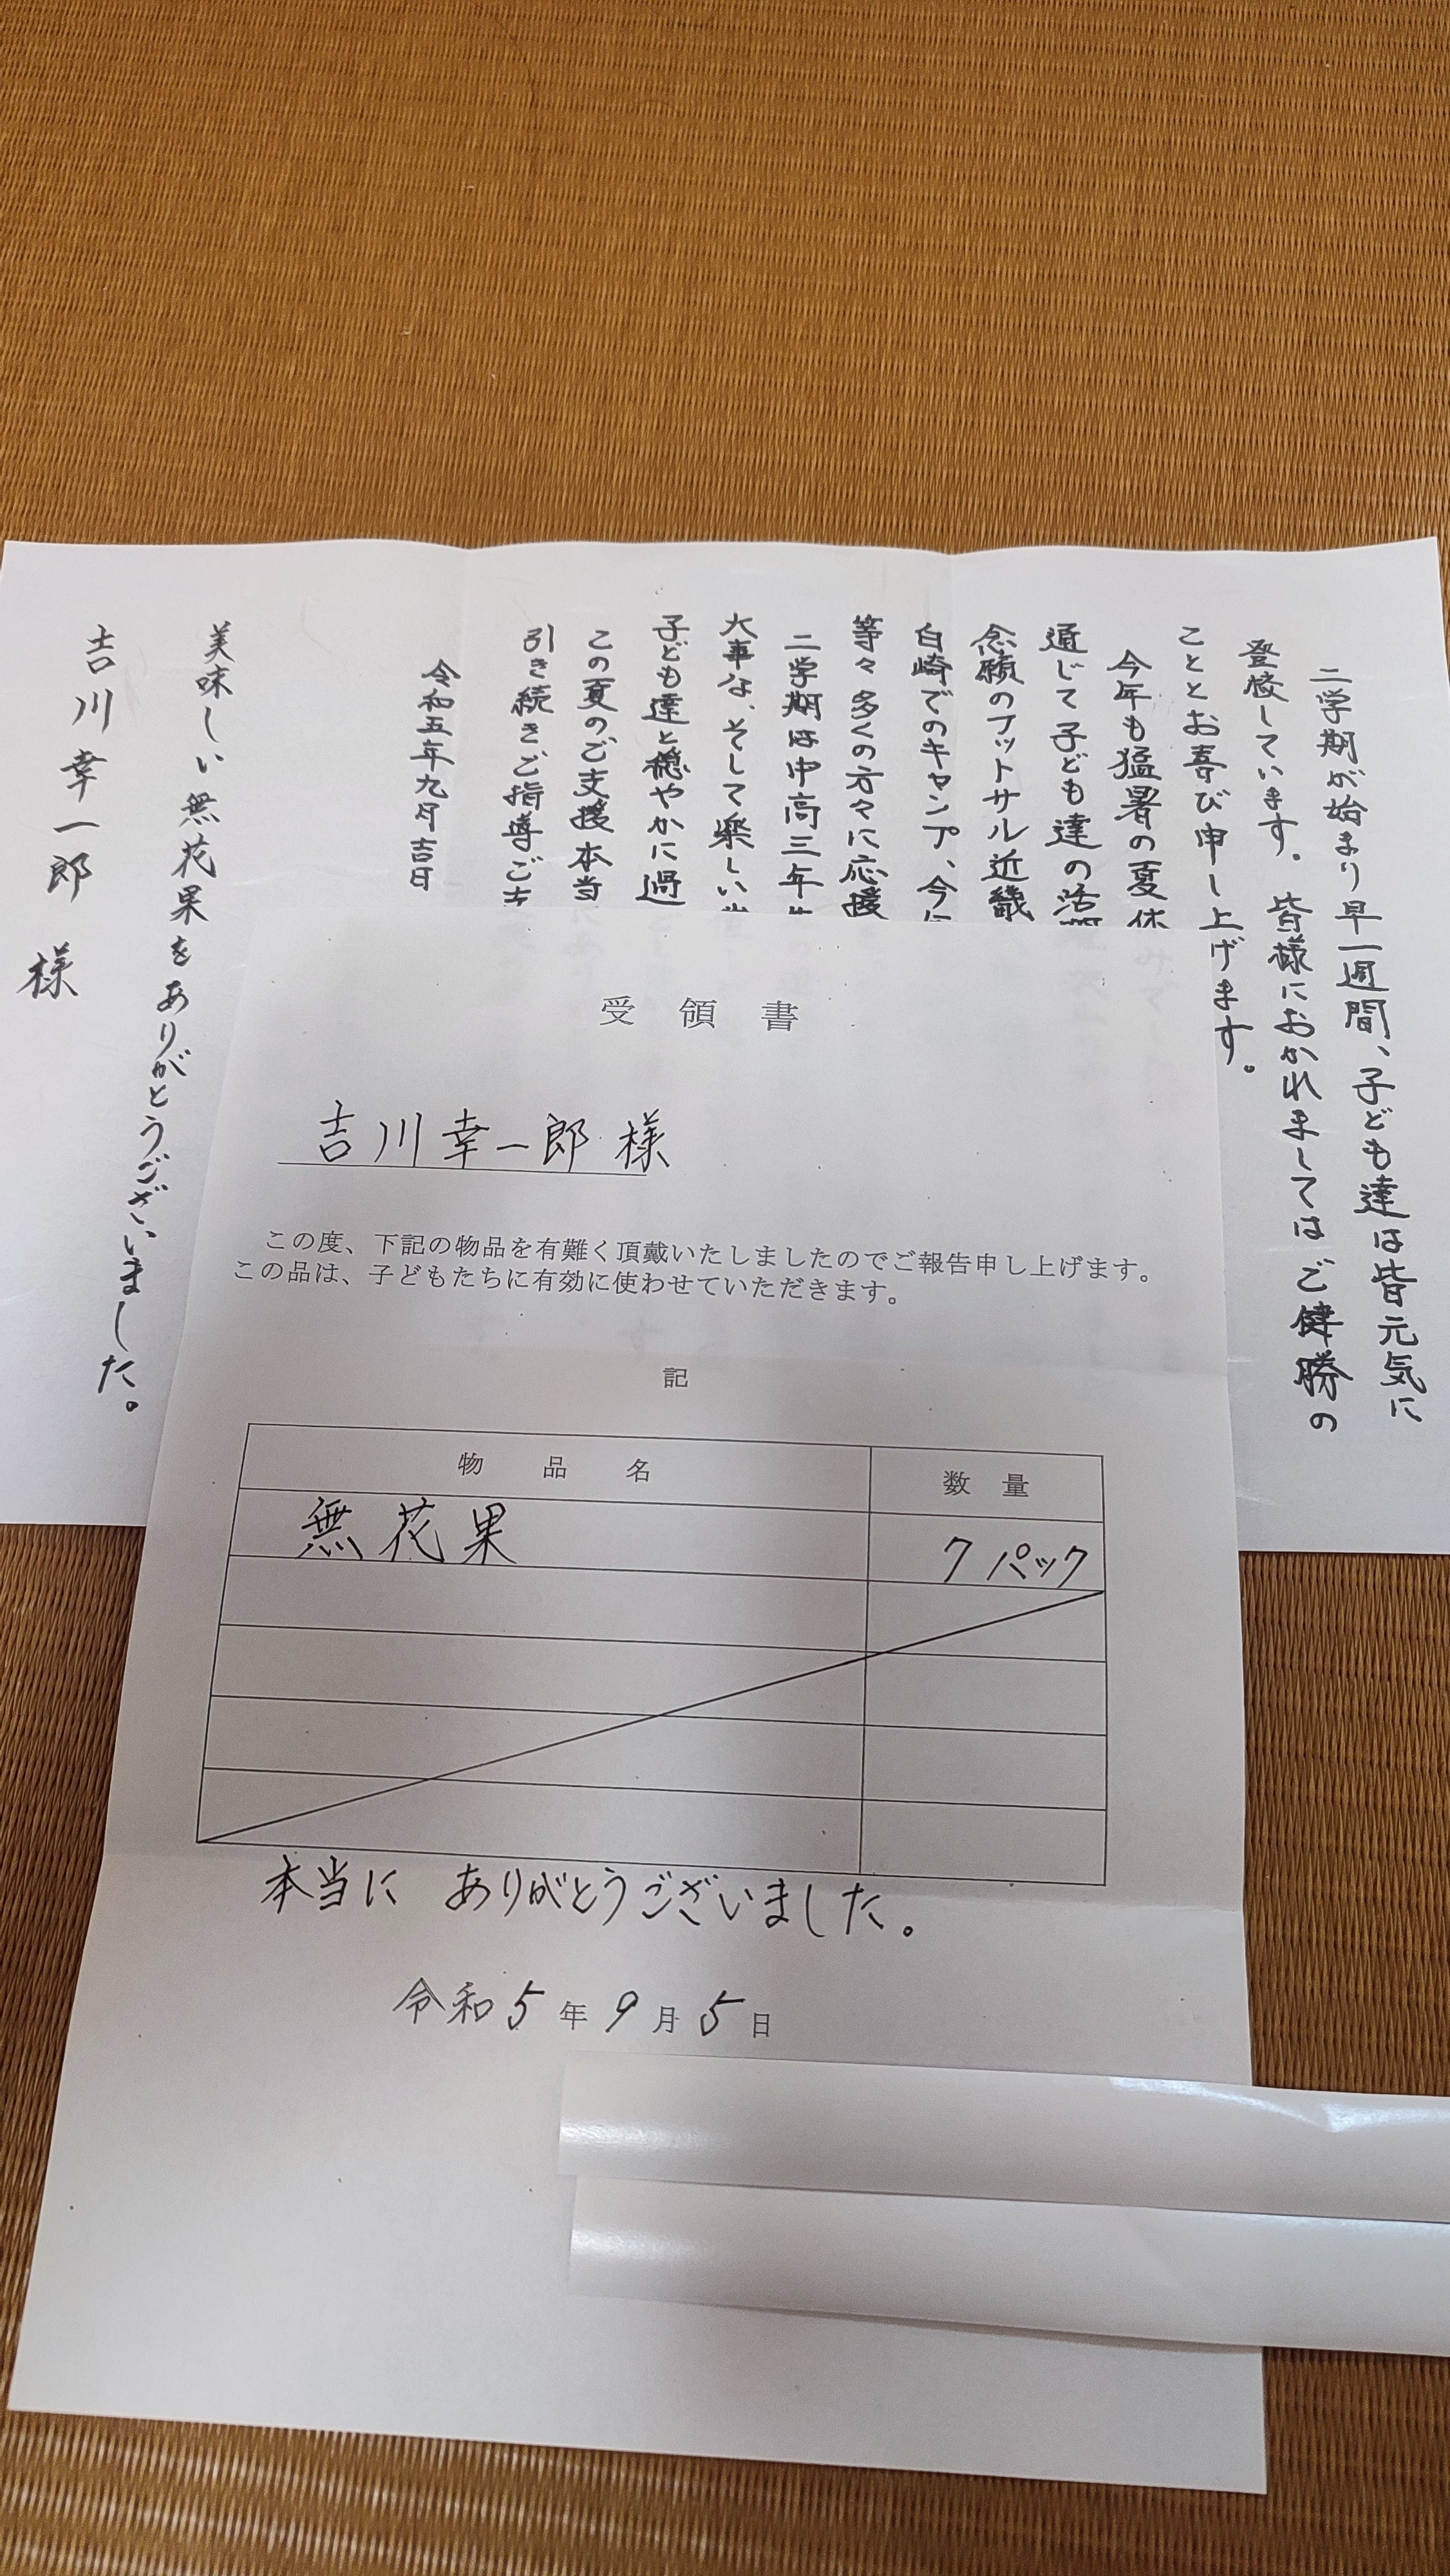 二学期が始まり早一週間、子ども達は皆元気に
登校しています。皆様におかれましてはご健勝の
こととお喜び申し上げます。
今年も猛暑の夏休
通じて子ども達の活
念願のフットサル近畿
白崎でのキャンプ、今
等々多くの方々に応援
二学期は中高三年生
大事な、そして楽しい
子ども達と穏やかに過
この夏のご支援本当
引き続きご指導ご支
令和五年九月吉日
美味しい無花果をありがとうございました。
吉川幸一郎様
受領書
吉川幸一郎様
この度、下記の物品を有難く頂戴いたしましたのでご報告申し上げます。
この品は、子どもたちに有効に使わせていただきます。
記
物品名 数量
無花果 7パック
本当に ありがとうございました。
令和5年9月5日